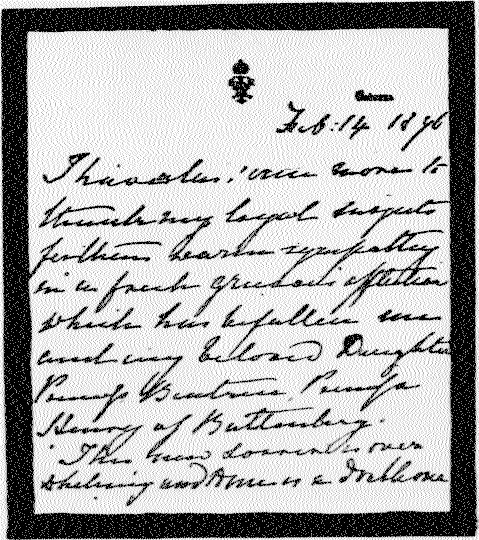 Osborne
Feb: 14 1896
I have, alas! once more to
thank my loyal subjects
for their warm sympathy
in a fresh grievous affliction
which has befallen me
and my beloved Daughter
Princess Beatrice, Princess
Henry of Battenberg.
This new sorrow is over
whelming and to me is a double one